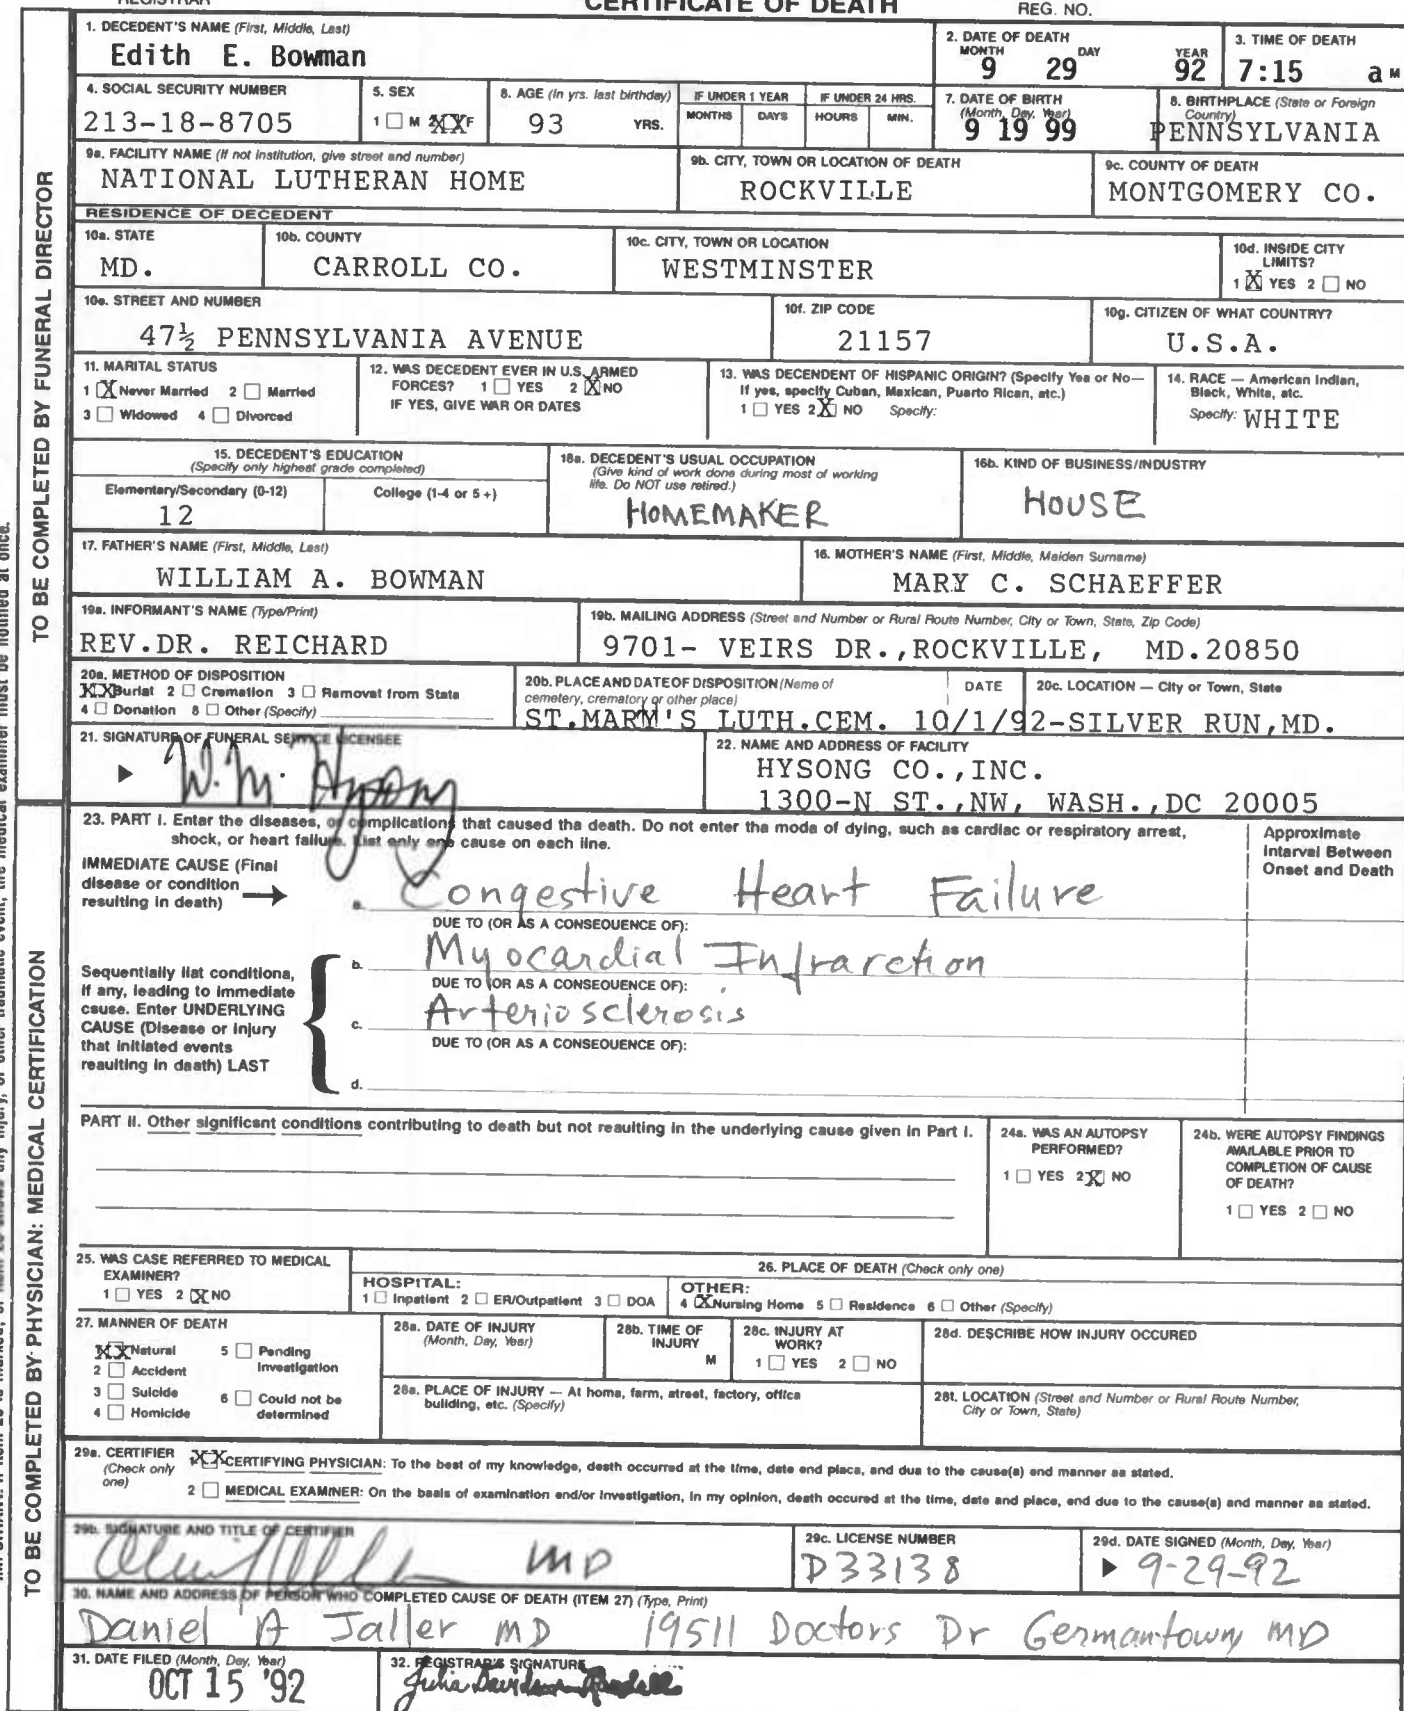 REGISTRAR
CERTIFICATE OF DEATH
REG. NO.
TO BE COMPLETED BY FUNERAL DIRECTOR
1. DECEDENT'S NAME (First, Middle, Last)
Edith E. Bowman
2. DATE OF DEATH
MONTH DAY YEAR
9 29 92
3. TIME OF DEATH
7:15 a M
4. SOCIAL SECURITY NUMBER
213-18-8705
5. SEX
1 M 2 XX F
6. AGE (In yrs. last birthday)
93 YRS.
IF UNDER 1 YEAR
MONTHS DAYS
IF UNDER 24 HRS.
HOURS MIN.
7. DATE OF BIRTH
(Month, Day, Year)
9 19 99
8. BIRTHPLACE (State or Foreign
Country)
PENNSYLVANIA
9a. FACILITY NAME (If not institution, give street and number)
NATIONAL LUTHERAN HOME
9b. CITY, TOWN OR LOCATION OF DEATH
ROCKVILLE
9c. COUNTY OF DEATH
MONTGOMERY CO.
RESIDENCE OF DECEDENT
10a. STATE
MD.
10b. COUNTY
CARROLL CO.
10c. CITY, TOWN OR LOCATION
WESTMINSTER
10d. INSIDE CITY
LIMITS?
1 X YES 2 NO
10e. STREET AND NUMBER
47½ PENNSYLVANIA AVENUE
10f. ZIP CODE
21157
10g. CITIZEN OF WHAT COUNTRY?
U.S.A.
11. MARITAL STATUS
1 X Never Married 2 Married
3 Widowed 4 Divorced
12. WAS DECEDENT EVER IN U.S. ARMED
FORCES? 1 YES 2 X NO
IF YES, GIVE WAR OR DATES
13. WAS DECENDENT OF HISPANIC ORIGIN? (Specify Yes or No—
If yes, specify Cuban, Mexican, Puerto Rican, etc.)
1 YES 2 X NO Specify:
14. RACE — American Indian,
Black, White, etc.
Specify: WHITE
15. DECEDENT'S EDUCATION
(Specify only highest grade completed)
Elementary/Secondary (0-12)
12
College (1-4 or 5 +)
16a. DECEDENT'S USUAL OCCUPATION
(Give kind of work done during most of working
life. Do NOT use retired.)
HOMEMAKER
16b. KIND OF BUSINESS/INDUSTRY
HOUSE
17. FATHER'S NAME (First, Middle, Last)
WILLIAM A. BOWMAN
18. MOTHER'S NAME (First, Middle, Maiden Surname)
MARY C. SCHAEFFER
19a. INFORMANT'S NAME (Type/Print)
REV.DR. REICHARD
19b. MAILING ADDRESS (Street and Number or Rural Route Number, City or Town, State, Zip Code)
9701- VEIRS DR.,ROCKVILLE, MD.20850
20a. METHOD OF DISPOSITION
XX Burial 2 Cremation 3 Removal from State
4 Donation 8 Other (Specify)
20b. PLACE AND DATE OF DISPOSITION (Name of
cemetery, crematory or other place)
DATE
20c. LOCATION — City or Town, State
ST.MARM'S LUTH.CEM. 10/1/92-SILVER RUN,MD.
21. SIGNATURE OF FUNERAL SERVICE LICENSEE
W.M. Hysong
22. NAME AND ADDRESS OF FACILITY
HYSONG CO.,INC.
1300-N ST.,NW, WASH.,DC 20005
TO BE COMPLETED BY PHYSICIAN: MEDICAL CERTIFICATION
23. PART I. Enter the diseases, or complications that caused the death. Do not enter the mode of dying, such as cardiac or respiratory arrest,
shock, or heart failure. List only one cause on each line.
Approximate
Interval Between
Onset and Death
IMMEDIATE CAUSE (Final
disease or condition
resulting in death)
a. Congestive Heart Failure
DUE TO (OR AS A CONSEQUENCE OF):
b. Myocardial Infrarction
DUE TO (OR AS A CONSEQUENCE OF):
c. Arteriosclerosis
DUE TO (OR AS A CONSEQUENCE OF):
d.
Sequentially list conditions,
if any, leading to immediate
cause. Enter UNDERLYING
CAUSE (Disease or injury
that initiated events
resulting in death) LAST
PART II. Other significant conditions contributing to death but not resulting in the underlying cause given in Part I.
24a. WAS AN AUTOPSY
PERFORMED?
1 YES 2 X NO
24b. WERE AUTOPSY FINDINGS
AVAILABLE PRIOR TO
COMPLETION OF CAUSE
OF DEATH?
1 YES 2 NO
25. WAS CASE REFERRED TO MEDICAL
EXAMINER?
1 YES 2 X NO
26. PLACE OF DEATH (Check only one)
HOSPITAL:
1 Inpatient 2 ER/Outpatient 3 DOA
OTHER:
4 X Nursing Home 5 Residence 6 Other (Specify)
27. MANNER OF DEATH
XX Natural 5 Pending
Investigation
2 Accident
3 Suicide 6 Could not be
determined
4 Homicide
28a. DATE OF INJURY
(Month, Day, Year)
28b. TIME OF
INJURY
M
28c. INJURY AT
WORK?
1 YES 2 NO
28d. DESCRIBE HOW INJURY OCCURED
28e. PLACE OF INJURY — At home, farm, street, factory, office
building, etc. (Specify)
28f. LOCATION (Street and Number or Rural Route Number,
City or Town, State)
29a. CERTIFIER
(Check only
one)
1 XX CERTIFYING PHYSICIAN: To the best of my knowledge, death occurred at the time, date end place, and due to the cause(s) end manner as stated.
2 MEDICAL EXAMINER: On the basis of examination end/or investigation, in my opinion, death occured at the time, date and place, end due to the cause(s) and manner as stated.
29b. SIGNATURE AND TITLE OF CERTIFIER
MD
29c. LICENSE NUMBER
D33138
29d. DATE SIGNED (Month, Day, Year)
9-29-92
30. NAME AND ADDRESS OF PERSON WHO COMPLETED CAUSE OF DEATH (ITEM 27) (Type, Print)
Daniel A Jaller MD 19511 Doctors Dr Germantown MD
31. DATE FILED (Month, Day, Year)
OCT 15 '92
32. REGISTRAR'S SIGNATURE